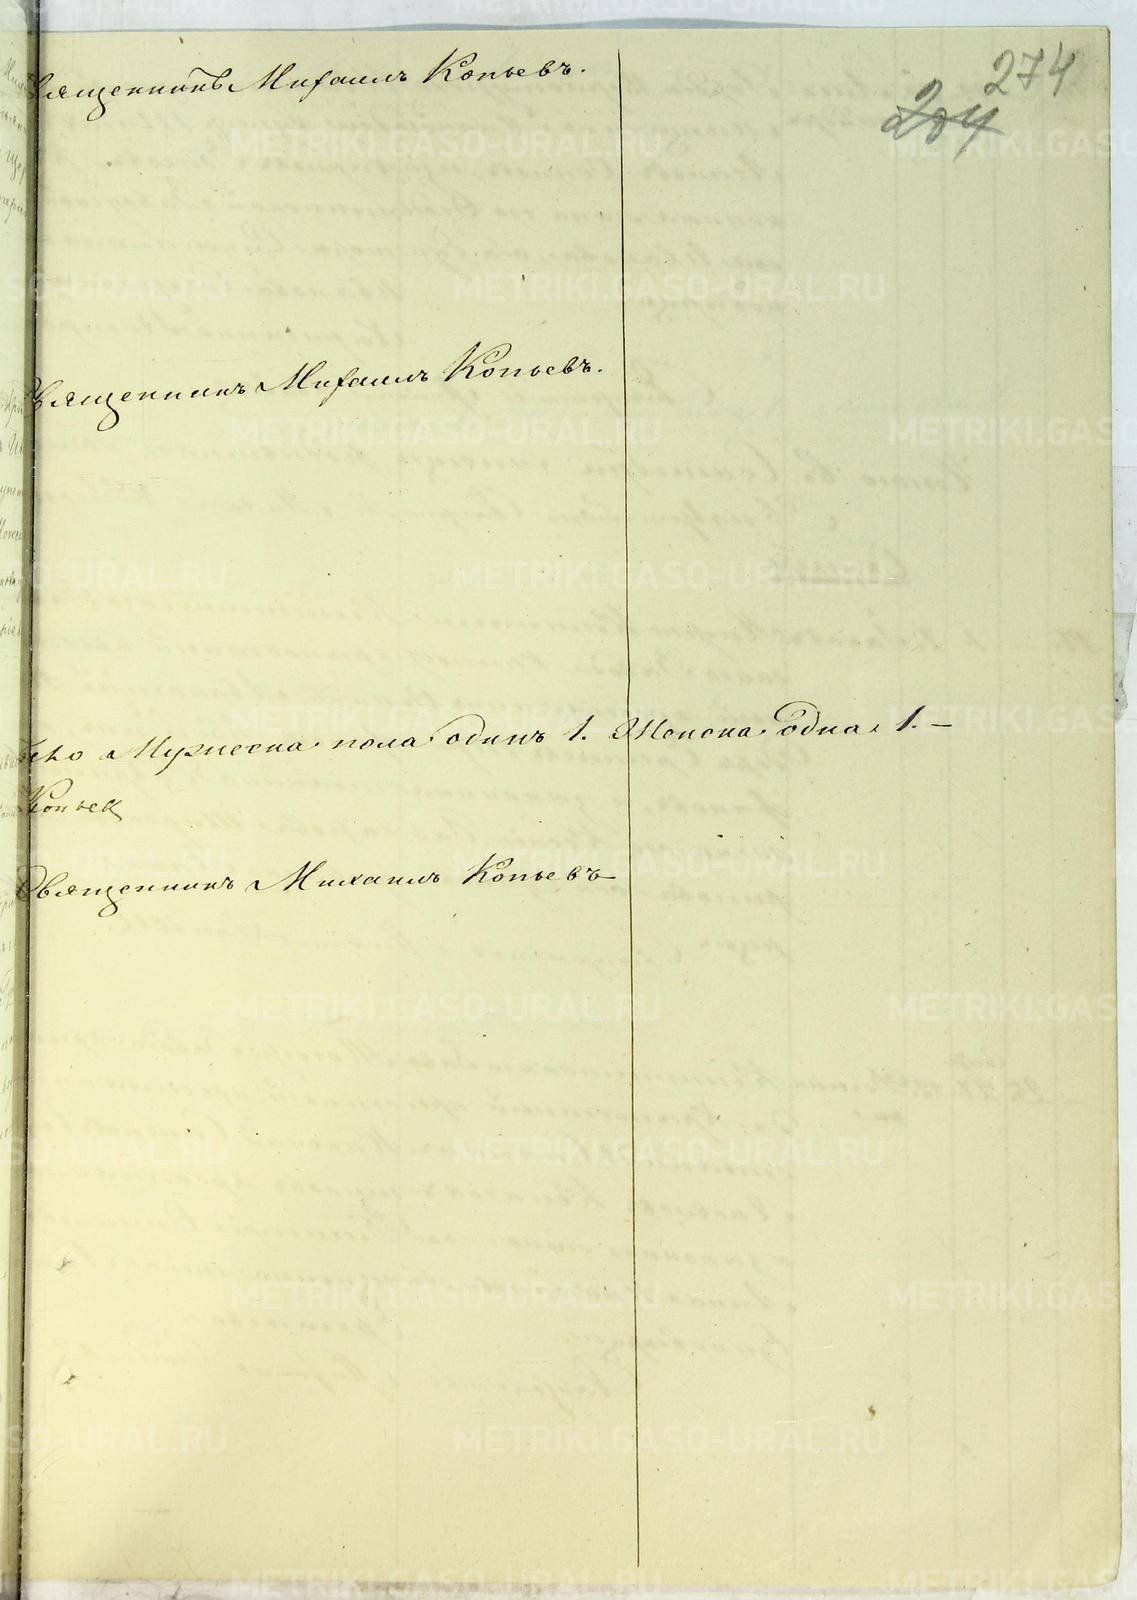 274
204
Священникъ Михаилъ Копьевъ.
Священникъ Михаилъ Копьевъ.
Мужеска пола одинъ 1. Женска одна 1. —
Копьев
Священникъ Михаилъ Копьевъ
METRIKI.GASO-URAL.RU